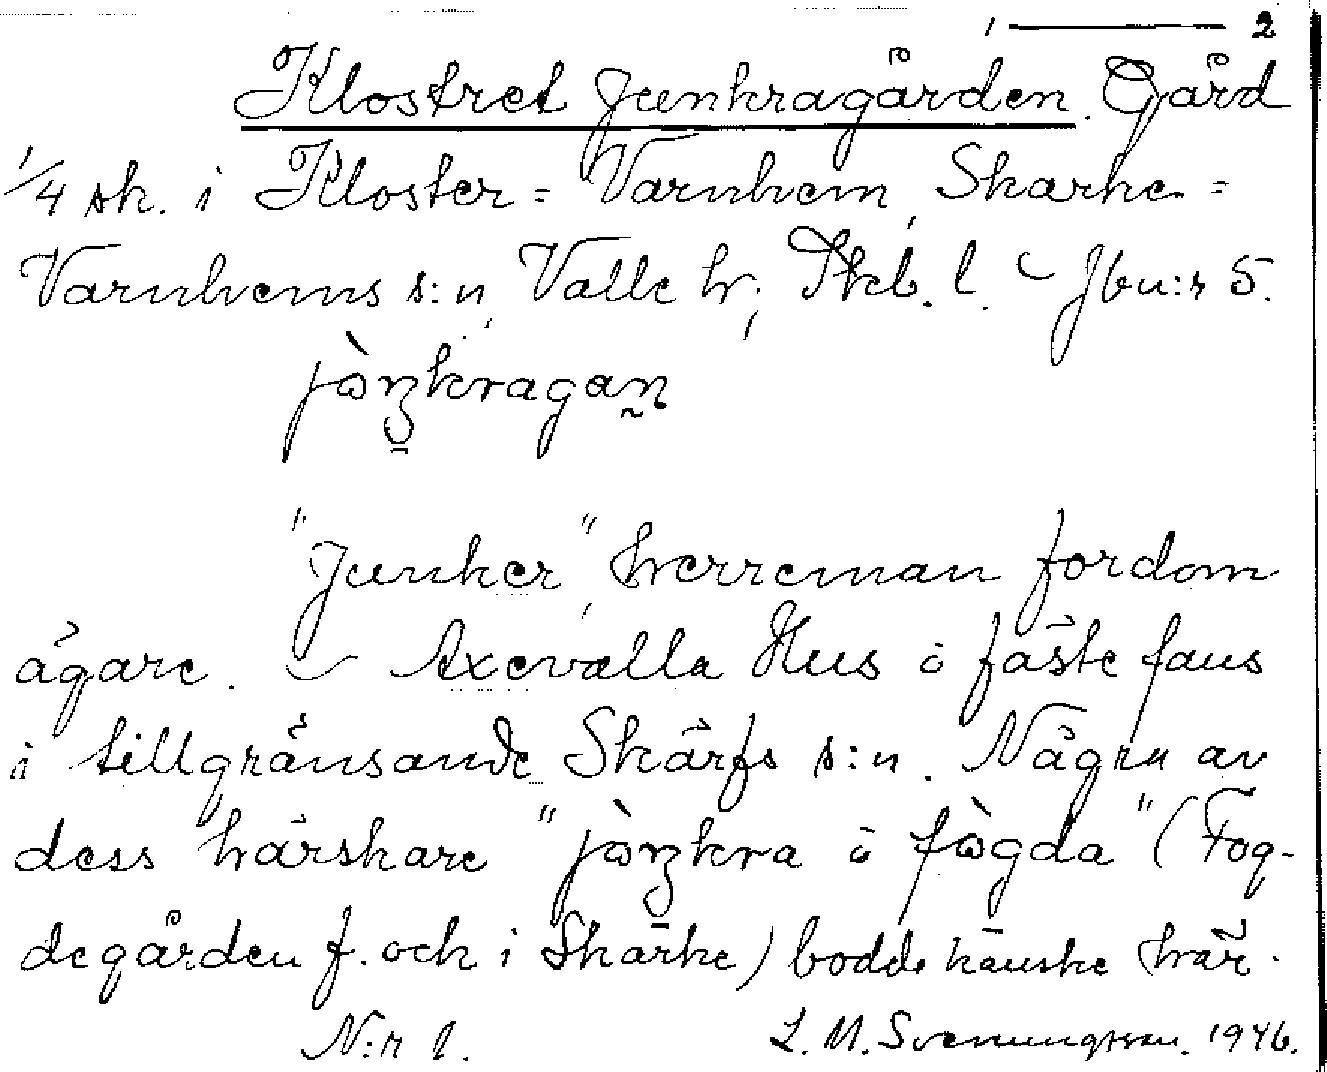 1 — 2
Klostret Junkragården. Gård
1/4 sk. i Kloster = Varnhem, Skarke =
Varnhems s:n, Valle hr, Skb. l. – Jbn:r 5.
"Junker", herreman fordom
ägare. – Axevalla Hus ö fäste fans
i tillgränsande Skärfs s:n. Några av
dess härskare "jòŋkra ö fògda" (Fog-
degården f. och i Skärke) bodde kanske här.
N:r 1. L. M. Svenungsson. 1946.